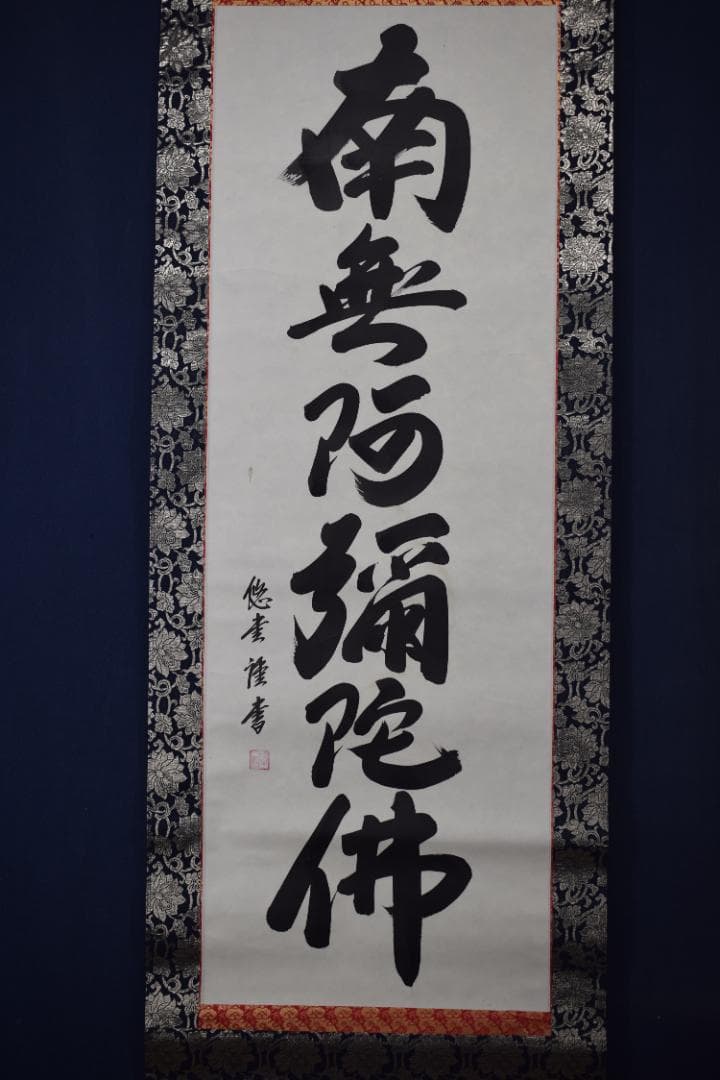 南無阿彌陀佛
悠雲謹書